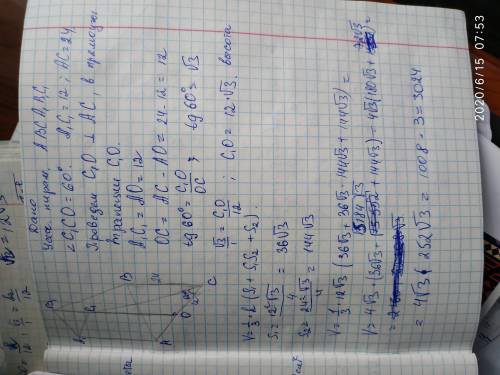 Дано
Усеч. пирам. ABCA₁B₁C₁
∠C₁CO = 60° A₁C₁ = 12; AC = 24
Проведем C₁O ⊥ AC, в прямоуг
трапеции C₁O
A₁C₁ = AO = 12
OC = AC - AO = 24 - 12 = 12
tg 60° = C₁O/OC ; tg 60° = √3
√3/1 = C₁O/12 ; C₁O = 12·√3 высота
B₁
C₁
A₁
B
24
C
O
A
12
V = 1/3 h (S₁ + √S₁S₂ + S₂)
S₁ = 12²√3/4 = 36√3
S₂ = 24²√3/4 = 144√3
V = 1/3 · 12√3 (36√3 + √36√3 · 144√3 + 144√3) =
V = 4√3 · (36√3 + 144√3) = 4√3 (180√3 +
= 4√3 · 252√3 = 1008 · 3 = 3024
2020/6/15 07:53